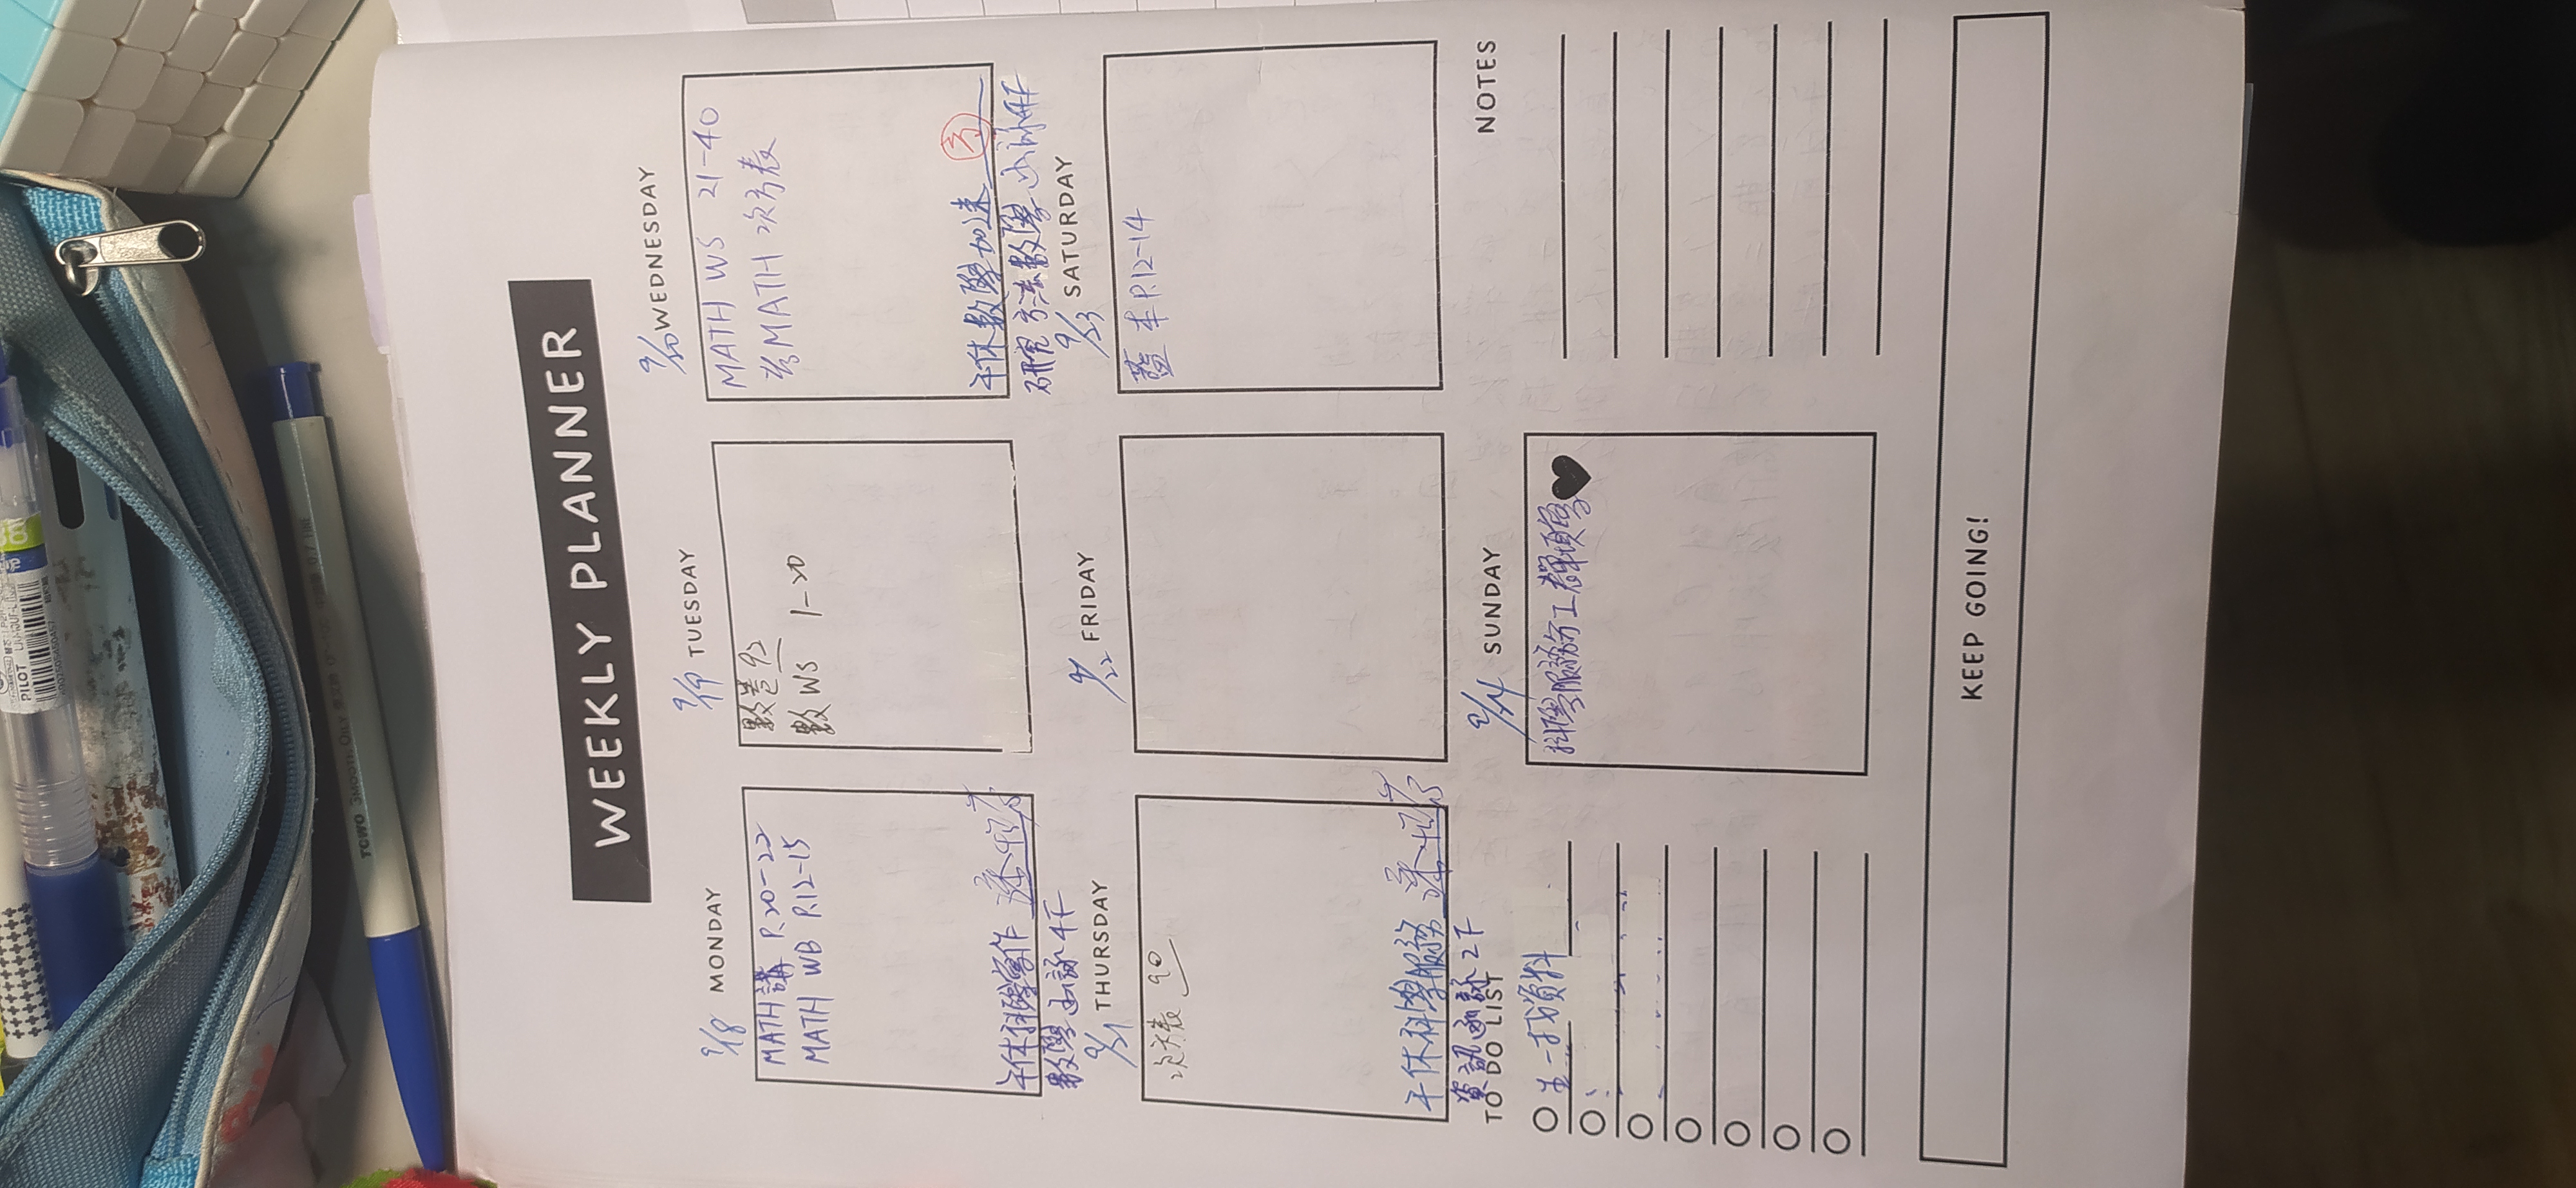 PILOT
4902505450457
TCWO SMOOTH OILY
WEEKLY PLANNER
9/18 MONDAY
MATH 講 P.20-22
MATH WB P.12-15
午休科學寫作
數學 函詠 4F
9/19 TUESDAY
數卷 92
數 WS 1-20
9/20 WEDNESDAY
MATH WS 21-40
考MATH 次方表
午休數學加速
研究方法數學 函詠4F
9/21 THURSDAY
次方表 90
午休科學服務
資訊函詠 2F
9/22 FRIDAY
9/23 SATURDAY
藍本P.12-14
TO DO LIST
生-找資料
9/24 SUNDAY
科學服務分工表單填寫
NOTES
KEEP GOING!